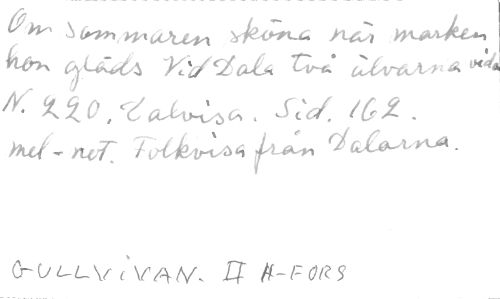 Om sommaren sköna när marken
hon gläds Vid Dala två älvarna vida
N. 220. Dalvisa. Sid. 162.
mel-not. Folkvisa från Dalarna.
GULLVIVAN. II H-FORS